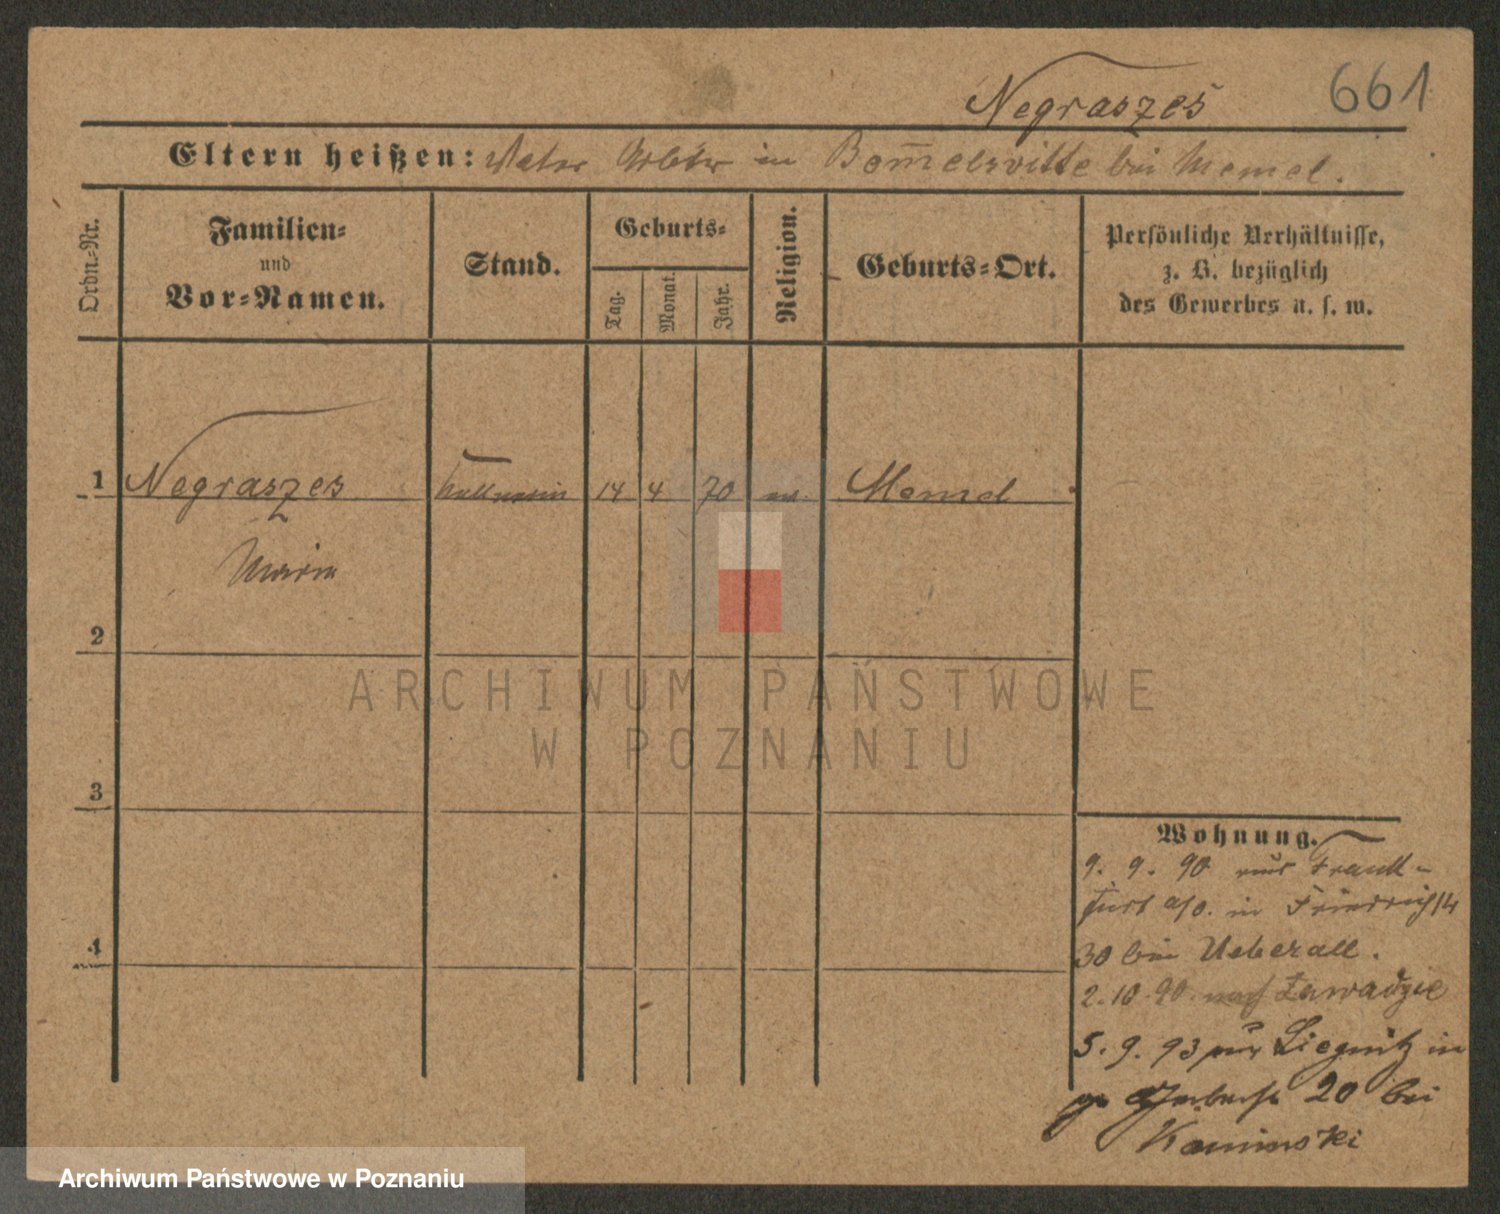 Negraszes 661
Eltern heißen: Vater Arbtr in Bom̄elsvitte bei Memel.
Ordn.-Nr.
Familien-
und
Vor-Namen.
Stand.
Geburts-
Tag.
Monat.
Jahr.
Religion.
Geburts-Ort.
Persönliche Verhältnisse,
z. B. bezüglich
des Gewerbes u. s. w.
1 Negraszes Kellnerin 14 4 70 ev. Memel
Maria
2
3
4
Wohnung.
9. 9. 90 aus Frank-
furt a/O. in Friedrichstr
30 bei Ueberall.
2. 10. 90. nach Zawadzie
5. 9. 93 Liegnitz in
20 bei
Kaminski
ARCHIWUM PAŃSTWOWE
W POZNANIU
Archiwum Państwowe w Poznaniu